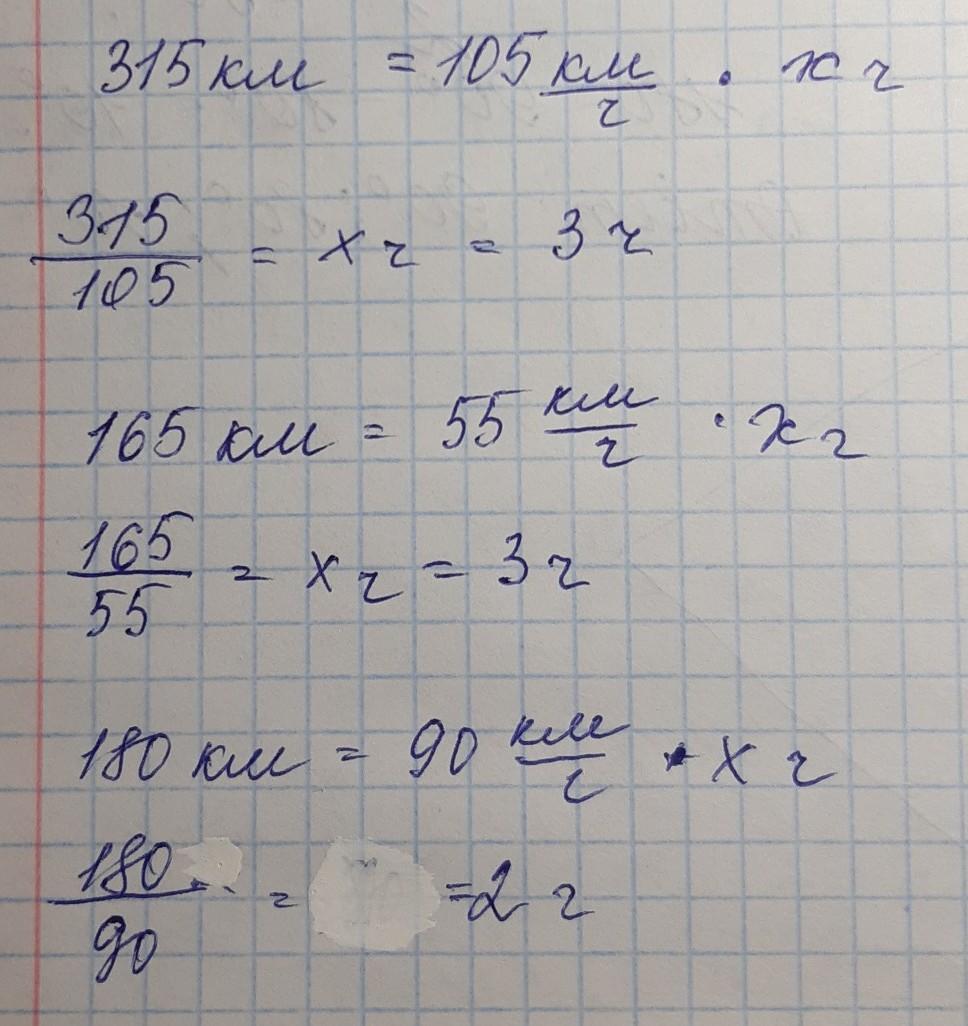 315 км = 105 км/ч · x ч
315/105 = x ч = 3 ч
165 км = 55 км/ч · x ч
165/55 = x ч = 3 ч
180 км = 90 км/ч · x ч
180/90 = = 2 ч